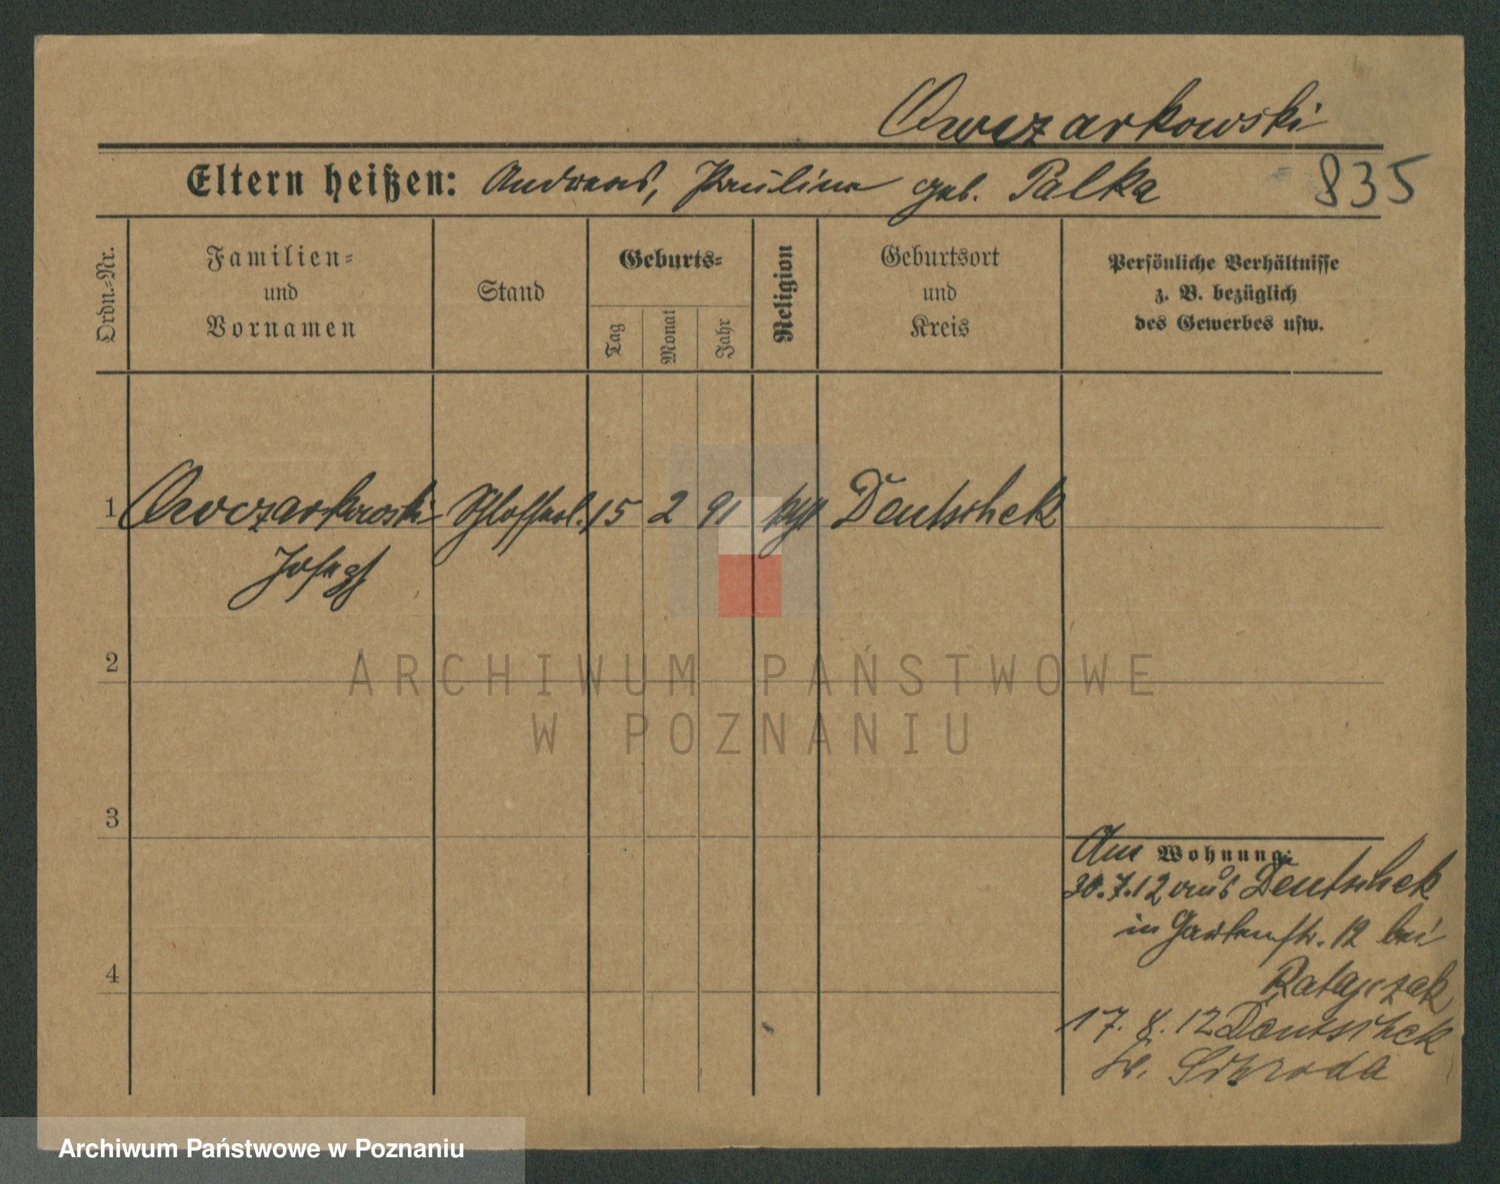 Owczarkowski
Eltern heißen: Andreas, Paulina geb. Palka
835
Ordn.-Nr.
Familien-
und
Vornamen
Stand
Geburts-
Tag
Monat
Jahr
Religion
Geburtsort
und
Kreis
Persönliche Verhältnisse
z. B. bezüglich
des Gewerbes usw.
1 Owczarkowski Schlosserl. 15 2 91 Deutschek
Josef
2
ARCHIWUM PAŃSTWOWE
W POZNANIU
3
Am Wohnung:
30.7.12 aus Deutschek
in Gartenstr. 12 bei
Ratajczak
17. 8. 12 Deutschek
Kr. Schroda
4
Archiwum Państwowe w Poznaniu